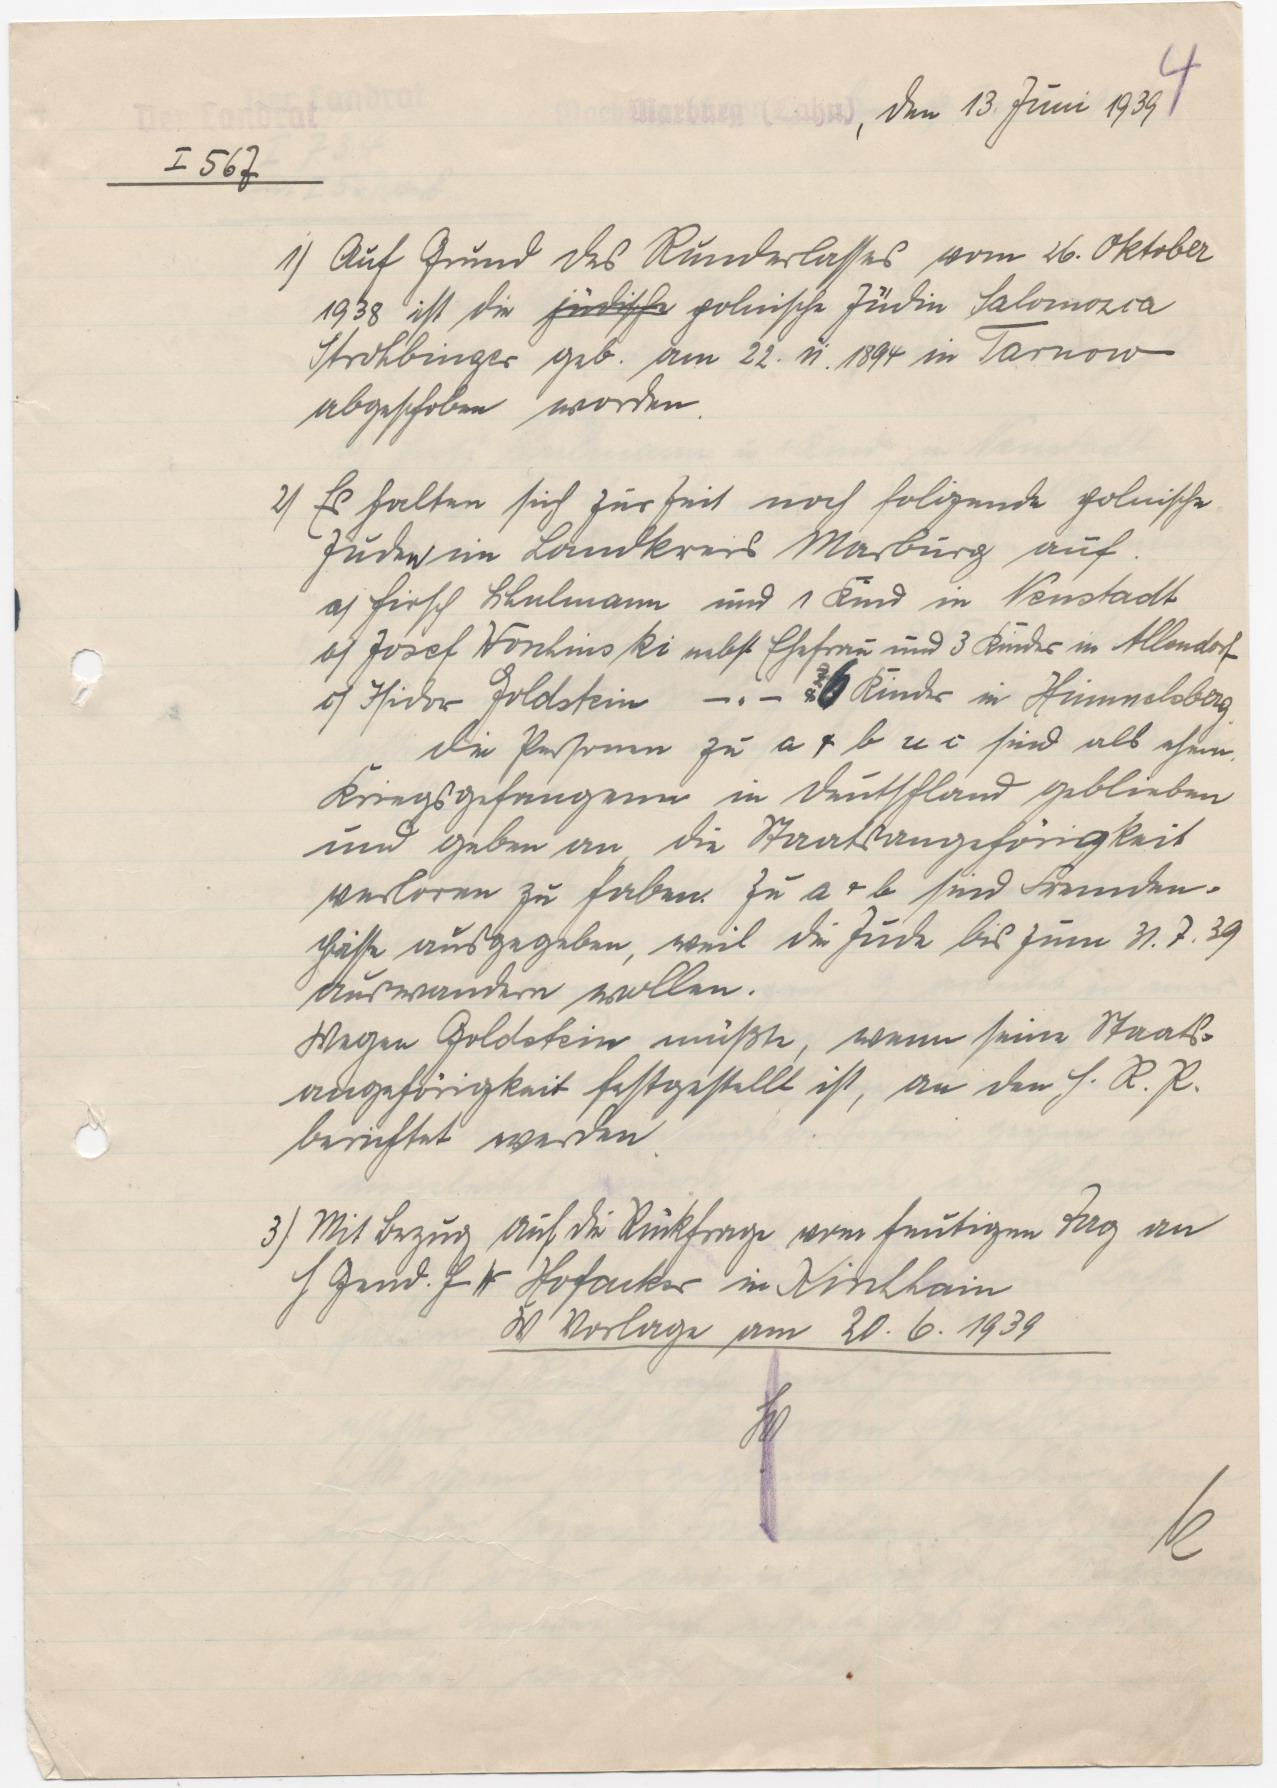 4
Der Landrat
Marburg (Lahn), den 13. Juni 1939
I 567
1) Auf Grund des Runderlasses vom 26. Oktober
1938 ist die jüdische polnische Jüdin Salomozca
Strohbinger geb. am 22. VI. 1894 in Tarnow
abgeschoben worden.
2) Es halten sich zur Zeit noch folgende polnische
Juden im Landkreis Marburg auf.
a) Hirsch Schulmann und 1 Kind in Neustadt
b) Josef Wonchinski nebst Ehefrau und 3 Kinder in Allendorf
c) Isidor Goldstein —.— und 6 Kinder in Himmelsberg.
Die Personen zu a + b u c sind als ehem.
Kriegsgefangene in Deutschland geblieben
und geben an, die Staatsangehörigkeit
verloren zu haben. Zu a + b sind Fremden-
pässe ausgegeben, weil die Jude bis zum 31.7.39
auswandern wollen.
Wegen Goldstein müßte, wenn seine Staats-
angehörigkeit festgestellt ist, an den H. R. P.
berichtet werden.
3) Mit Bezug auf die Rückfrage vom heutigen Tag an
H Gend. H W Hofacker in Kirchhain
W Vorlage am 20. 6. 1939